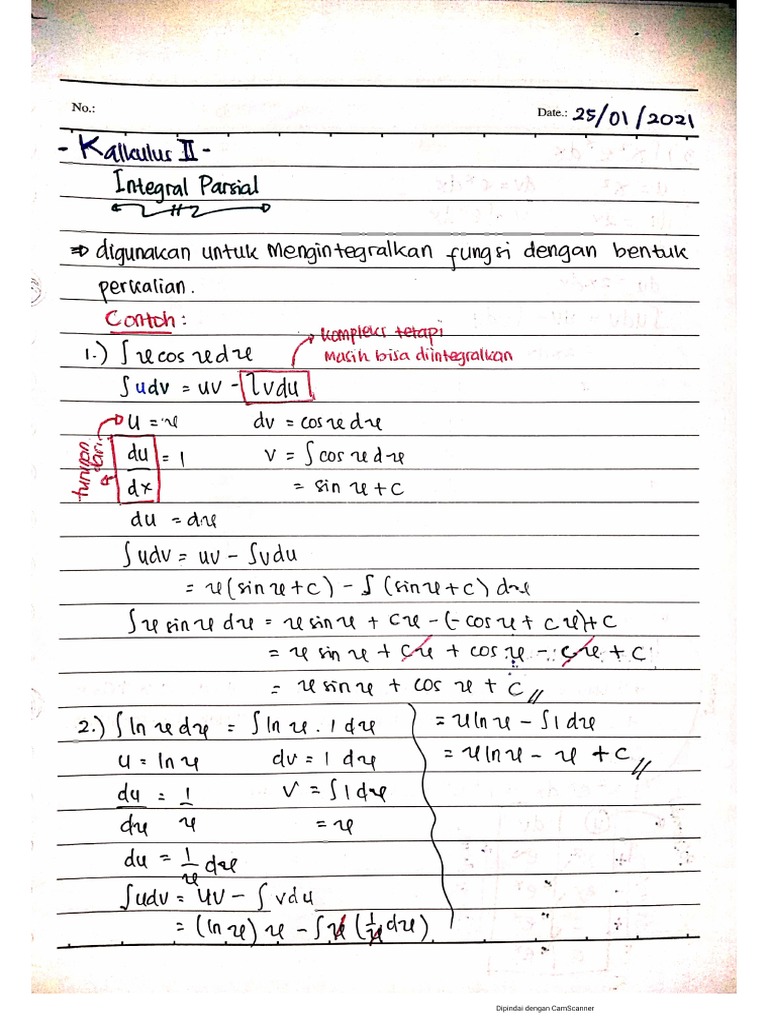 No.:
Date.: 25/01/2021
- Kallkulus II -
Integral Parsial
⇒ digunakan untuk mengintegralkan fungsi dengan bentuk
perkalian.
Contoh:
1.) ∫ x cos x dx
kompleks tetapi
masih bisa diintegralkan
∫ u dv = uv - ∫ v du
u = x
dv = cos x dx
turunan dari
du/dx = 1
v = ∫ cos x dx
= sin x + c
du = dx
∫ u dv = uv - ∫ v du
= x (sin x + c) - ∫ (sin x + c) dx
∫ x sin x dx = x sin x + cx - (-cos x + cx) + c
= x sin x + cx + cos x - cx + c
= x sin x + cos x + c //
2.) ∫ ln x dx = ∫ ln x . 1 dx
u = ln x
dv = 1 dx
du/dx = 1/x
v = ∫ 1 dx
= x
du = 1/x dx
∫ u dv = uv - ∫ v du
= (ln x) x - ∫ x (1/x dx)
= x ln x - ∫ 1 dx
= x ln x - x + c //
Dipindai dengan CamScanner